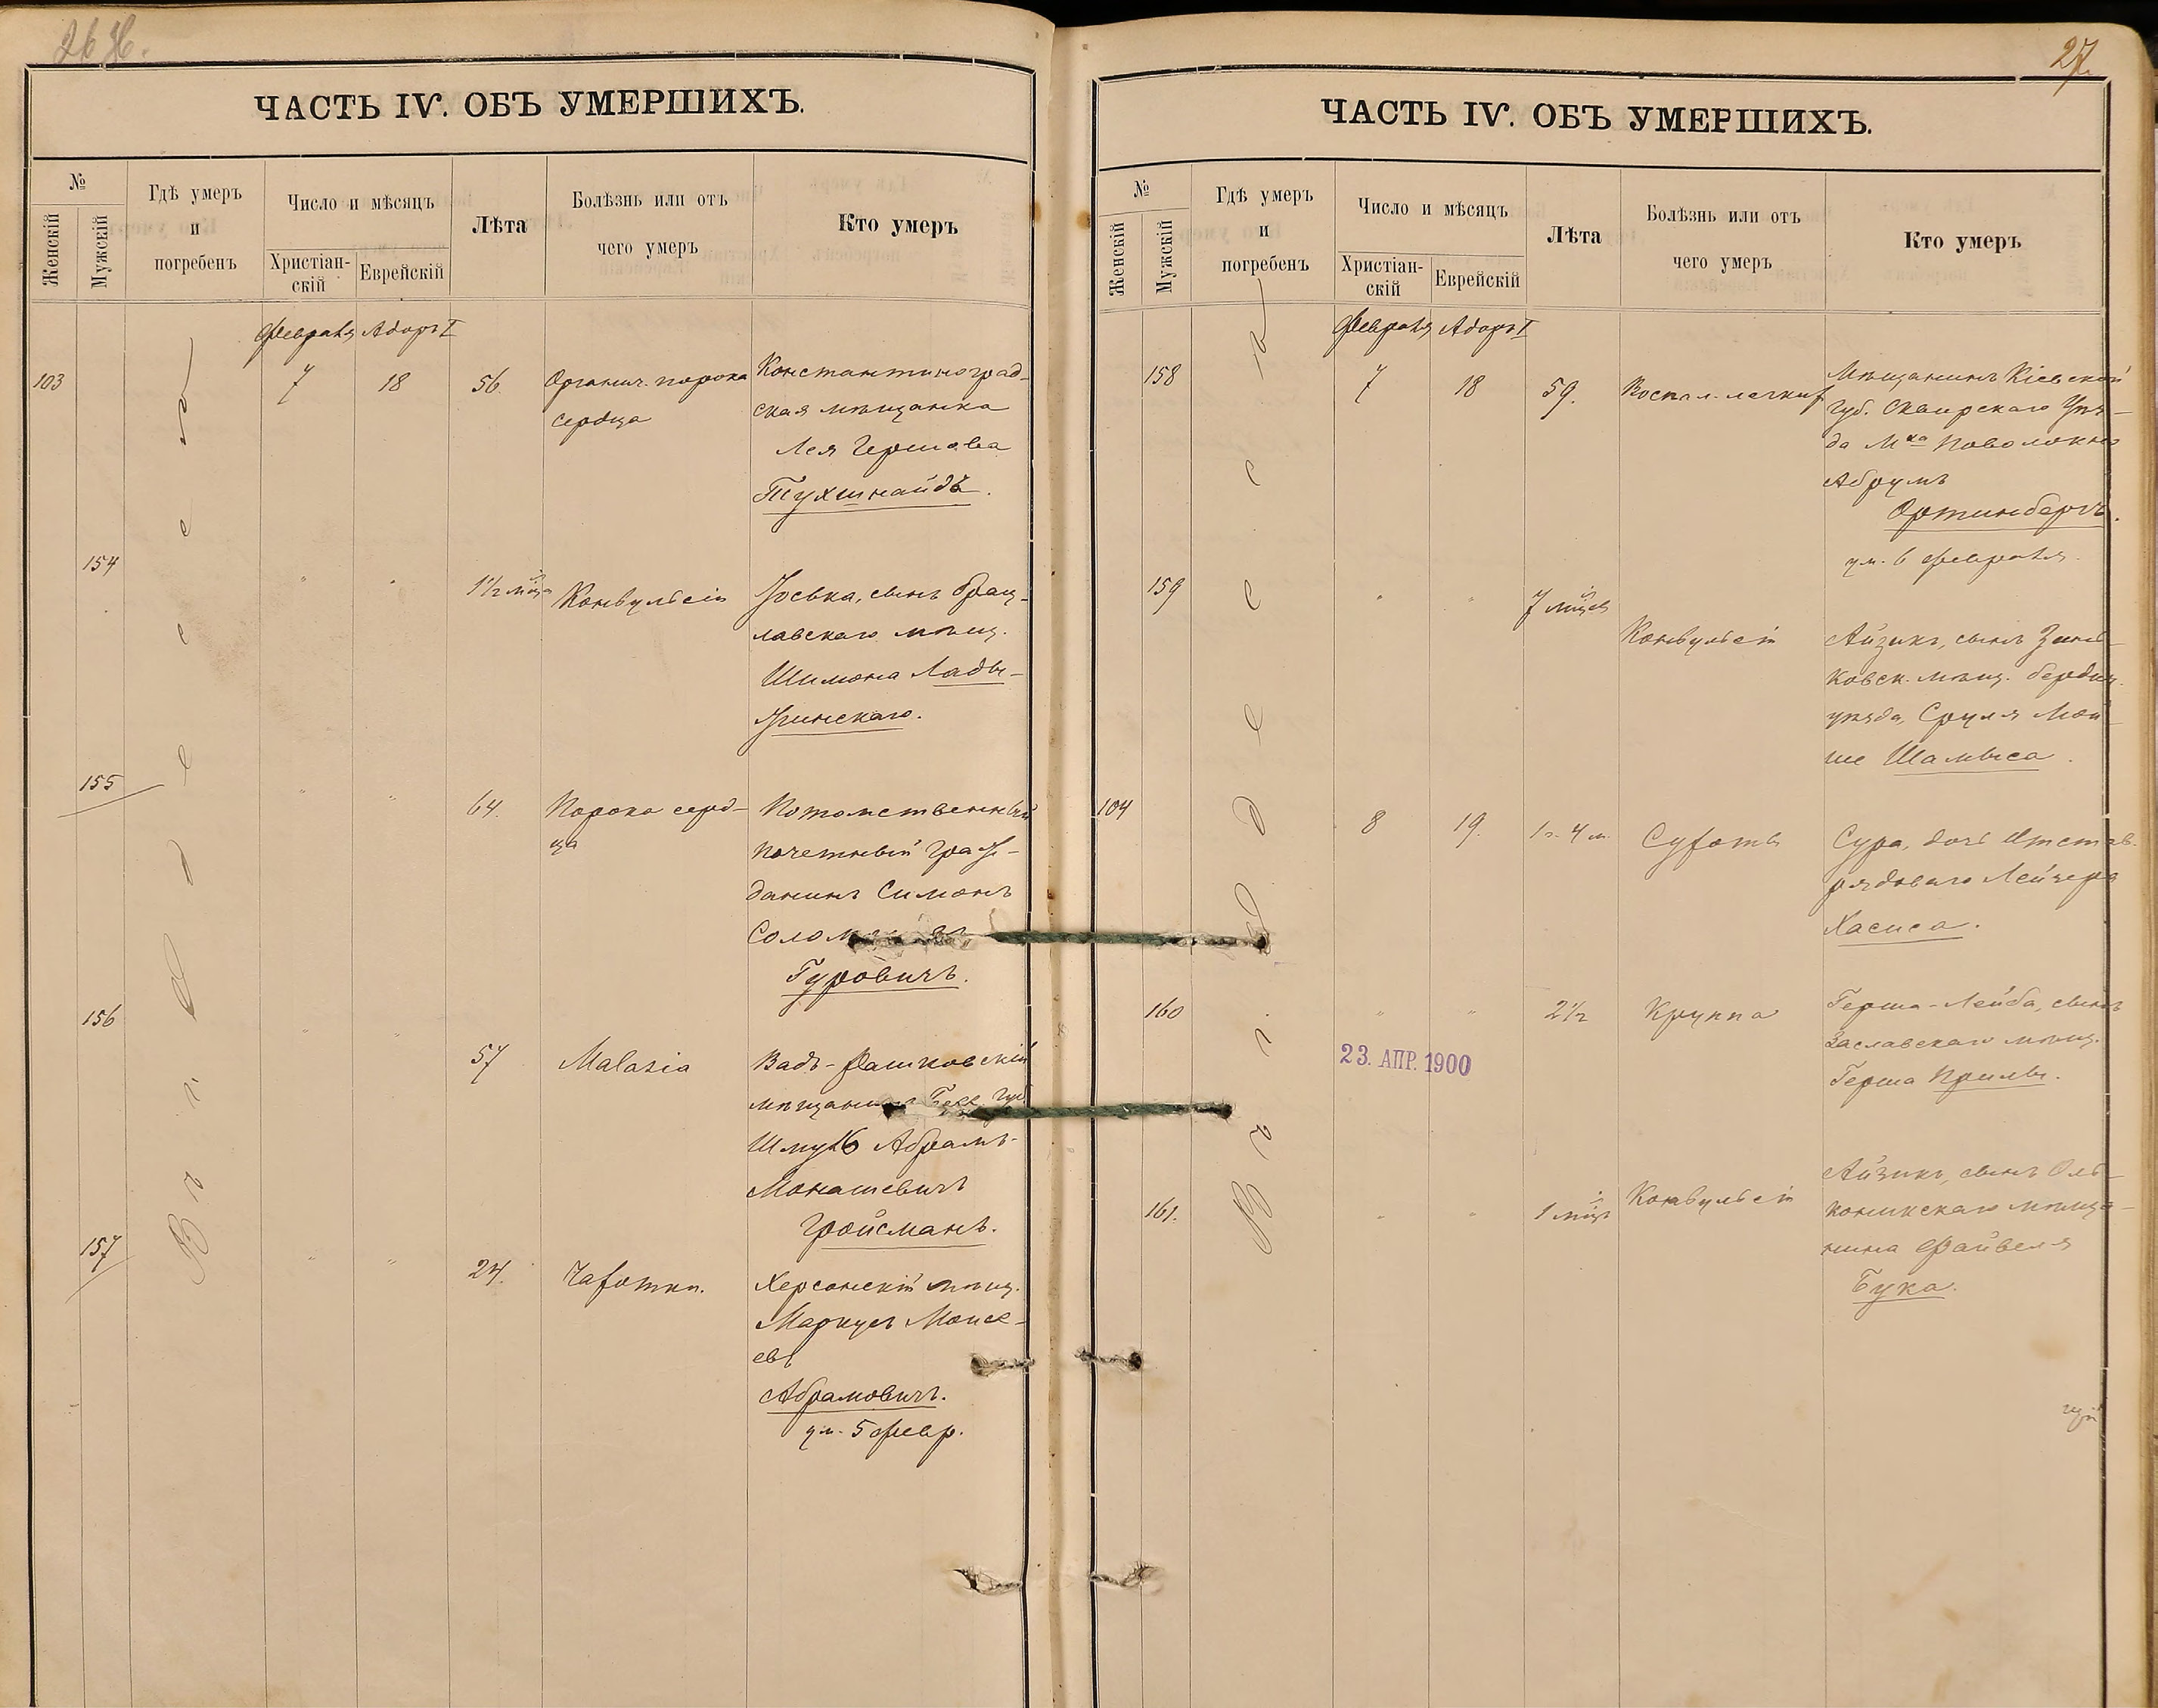 27.
ЧАСТЬ IV. ОБЪ УМЕРШИХЪ.
№
Женскій
Мужскій
Гдѣ умеръ
и
погребенъ
Число и мѣсяцъ
Христіан-
скій
Еврейскій
Лѣта
Болѣзнь или отъ
чего умеръ
Кто умеръ
Февраля Адоръ I
103
7
18
56
Органич. порока
сердца
Константиноград-
ская мѣщанка
Лея Гершова
Тухшнайдъ.
154
" "
1½ мѣца
Конвульсіи
Іоська, сынъ брац-
лавскаго мѣщ.
Шимона Лады-
жинскаго.
155
" "
64.
Порока серд-
ца
Потомственный
почетный граж-
данинъ Симонъ
Гуровичъ.
156
" "
57
Вадъ-Рашковскій
Шмуль Абрамъ-
Монашевичъ
Гройсманъ.
157
" "
24.
Чахотки.
Херсонскій мѣщ.
Маркусъ Моисе-
евъ
Абрамовичъ.
ум. 5 февр.
В г. Одессе
ЧАСТЬ IV. ОБЪ УМЕРШИХЪ.
№
Женскій
Мужскій
Гдѣ умеръ
и
погребенъ
Число и мѣсяцъ
Христіан-
скій
Еврейскій
Лѣта
Болѣзнь или отъ
чего умеръ
Кто умеръ
Февраля Адоръ I
158
7
18
59.
Воспал. легкихъ
Мѣщанинъ Кіевской
губ. Сквирскаго Уѣз-
да Мка Паволочь
Абрумъ
Ортинбергъ.
ум. 6 февраля.
159
" "
7 мѣцев
Конвульсіи
Айзикъ, сынъ Зинь-
ковск. мѣщ. бердич.
уѣзда, Сруля Мой
ше Шамыса.
104
8
19.
1 г. 4 м.
Сухоты
Сура, дочь Отстав.
рядоваго Лейзера
Хасиса.
160
" "
2½
Круппа
Герша-Лейба, сынъ
Заславскаго мѣщ.
Герша Прилы.
23. АПР. 1900
161.
" "
1 мѣць
Конвульсіи
Айзикъ, сынъ Оль-
нина Файвеля
Бука.